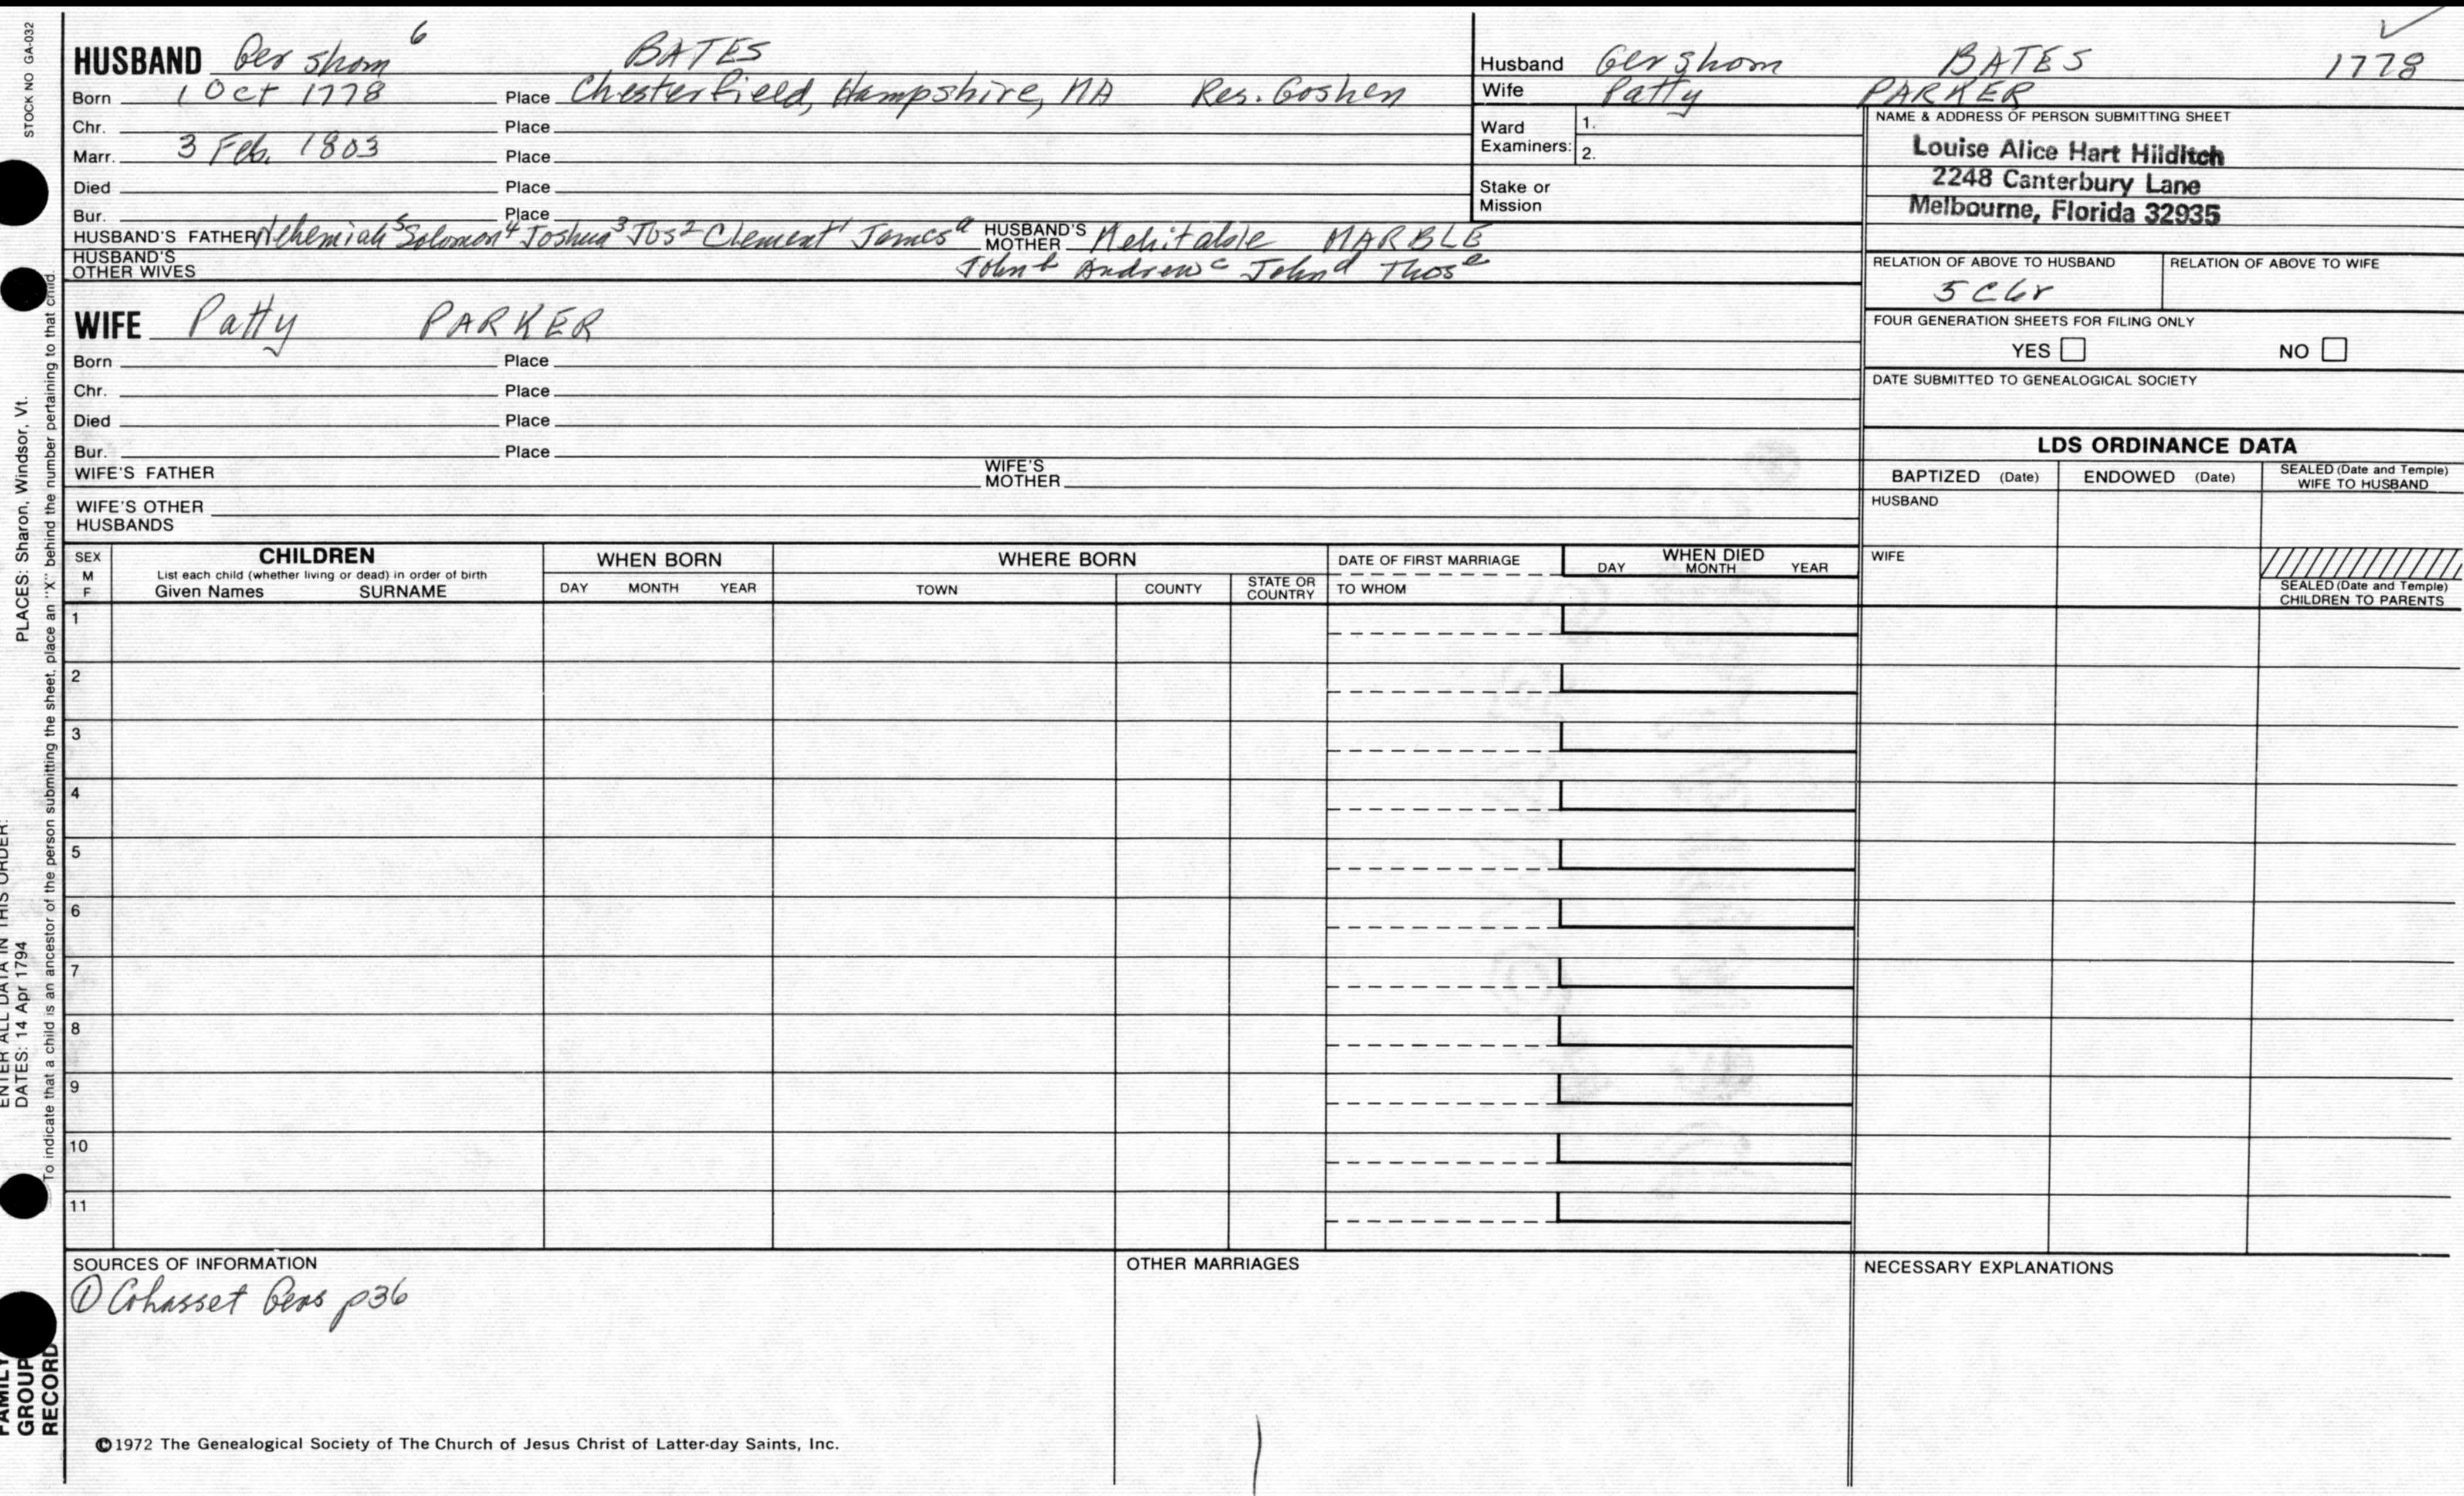 STOCK NO GA-032
PLACES: Sharon, Windsor, Vt.
ENTER ALL DATA IN THIS ORDER:
DATES: 14 Apr 1794
To indicate that a child is an ancestor of the person submitting the sheet, place an "X" behind the number pertaining to that child.
FAMILY
GROUP
RECORD
HUSBAND Gershom 6 BATES
Born 1 Oct 1778 Place Chesterfield, Hampshire, MA Res. Goshen
Chr. Place
Marr. 3 Feb. 1803 Place
Died Place
Bur. Place
HUSBAND'S FATHER Nehemiah 5 Solomon 4 Joshua 3 Jos 2 Clement 1 James a HUSBAND'S MOTHER Mehitable MARBLE
HUSBAND'S OTHER WIVES John b Andrew c John d Thos e
Husband Gershom BATES 1778
Wife Patty PARKER
Ward Examiners: 1.
2.
Stake or Mission
NAME & ADDRESS OF PERSON SUBMITTING SHEET
Louise Alice Hart Hilditch
2248 Canterbury Lane
Melbourne, Florida 32935
RELATION OF ABOVE TO HUSBAND RELATION OF ABOVE TO WIFE
5 C 6r
FOUR GENERATION SHEETS FOR FILING ONLY
YES NO
DATE SUBMITTED TO GENEALOGICAL SOCIETY
WIFE Patty PARKER
Born Place
Chr. Place
Died Place
Bur. Place
WIFE'S FATHER WIFE'S MOTHER
WIFE'S OTHER HUSBANDS
LDS ORDINANCE DATA
BAPTIZED (Date) ENDOWED (Date) SEALED (Date and Temple) WIFE TO HUSBAND
HUSBAND
WIFE
SEALED (Date and Temple) CHILDREN TO PARENTS
SEX M F
CHILDREN
List each child (whether living or dead) in order of birth
Given Names SURNAME
WHEN BORN
DAY MONTH YEAR
WHERE BORN
TOWN COUNTY STATE OR COUNTRY
DATE OF FIRST MARRIAGE
TO WHOM
WHEN DIED
DAY MONTH YEAR
1
2
3
4
5
6
7
8
9
10
11
SOURCES OF INFORMATION
① Cohasset Gens p36
OTHER MARRIAGES
NECESSARY EXPLANATIONS
©1972 The Genealogical Society of The Church of Jesus Christ of Latter-day Saints, Inc.